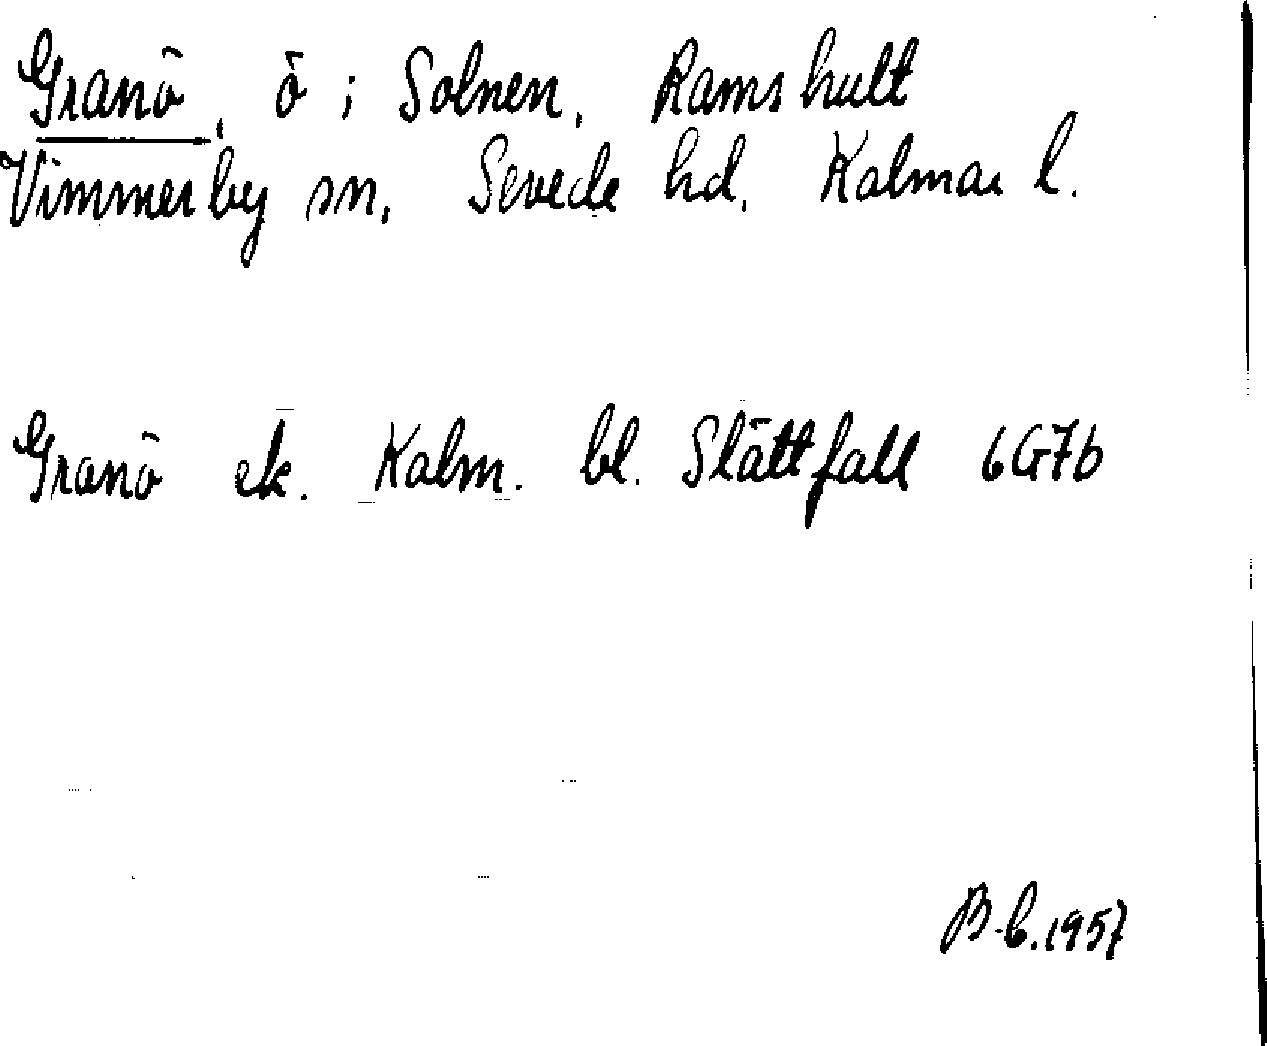 Granö, ö i Solnen, Ramshult
Vimmerby sn, Sevede hd, Kalmar l.
Granö ek. Kalm. bl. Slättfall 6G7b
B-b. 1957